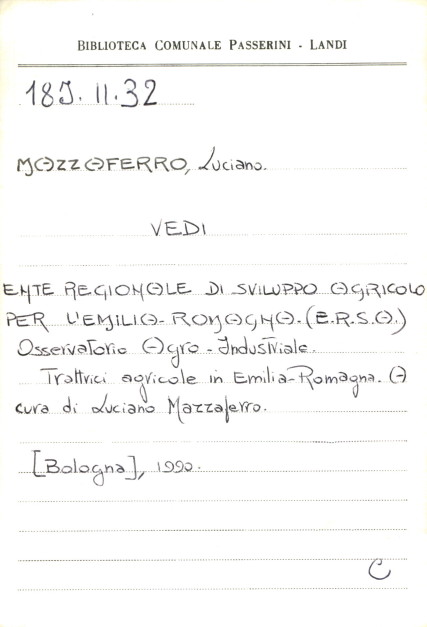 BIBLIOTECA COMUNALE PASSERINI - LANDI
18J. II. 32
MAZZAFERRO, Luciano.
VEDI
ENTE REGIONALE DI SVILUPPO AGRICOLO
PER L'EMILIA-ROMAGNA. (E.R.S.A.)
Osservatorio Agro-Industriale.
Trattrici agricole in Emilia-Romagna. A
cura di Luciano Mazzaferro.
[Bologna], 1990.
C